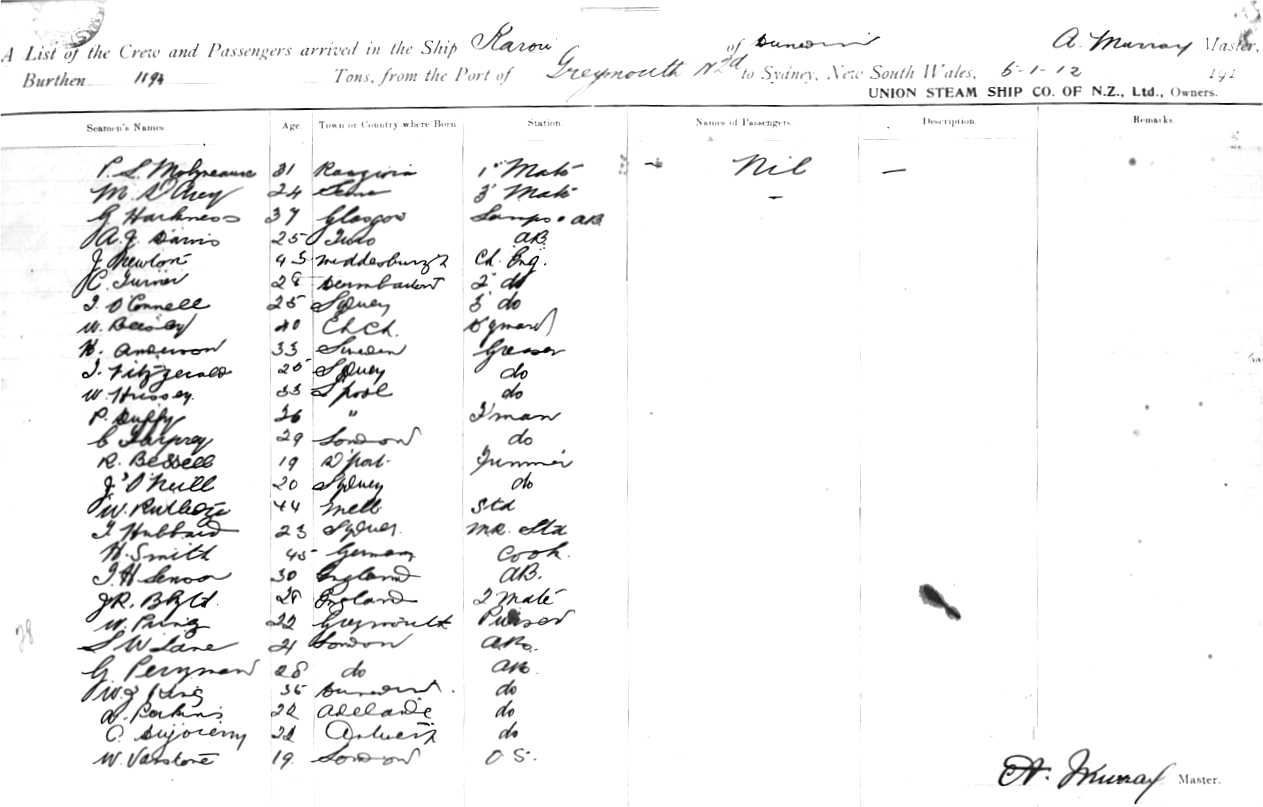 A List of the Crew and Passengers arrived in the Ship Karori of Dunedin A. Murray Master,
Burthen 1194 Tons, from the Port of Greymouth NZd to Sydney, New South Wales, 5-1-12 191
UNION STEAM SHIP CO. OF N.Z., Ltd., Owners.
Seamen's Names Age Town or Country where Born Station Names of Passengers Description Remarks
P. S. Molyneaux 31 Rangiora 1st Mate Nil —
M. D'Arcy 24 3rd Mate –
G Harkness 37 Glasgow Lamps & AB
A. J. Davis 25 AB
J Newton 45 Ch. Eng.
C. Turner 28 2 do
J. O'Connell 25 Sydney 3 do
W. 40 ChCh.
H. Anderson 33 Sweden Greaser
J. Fitzgerald 25 Sydney do
W. Hussey 33 L'pool do
P. Duffy 26 " F'man
C 29 London do
R. Bessell 19 Trimmer
J O'Neill 20 Sydney do
W. Rutledge 44 Melb Std
J. Hubbard 23 Sydney. MR. Std
H. Smith 45 Germany Cook.
J. H 30 England AB.
J R. 28 England 2 Mate
W. Pring 22 Greymouth Purser
S W Lane 21 London AB.
G. Perryman 28 do AB
W. J King 35 Dunedin. do
A. Perkins 22 Adelaide do
C. 22 Antwerp do
W. Varstone 19 London O S.
28
A. Murray Master.